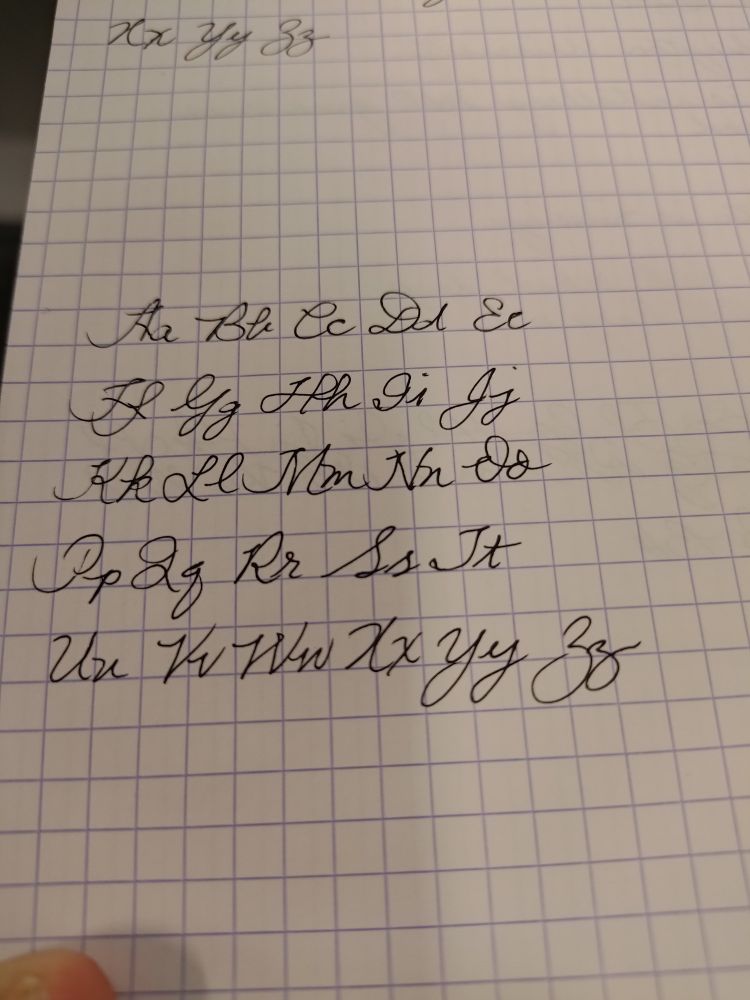 Xx Yy Zz
Aa Bb Cc Dd Ee
Ff Gg Hh Ii Jj
Kk Ll Mm Nn Oo
Pp Qq Rr Ss Tt
Uu Vv Ww Xx Yy Zz